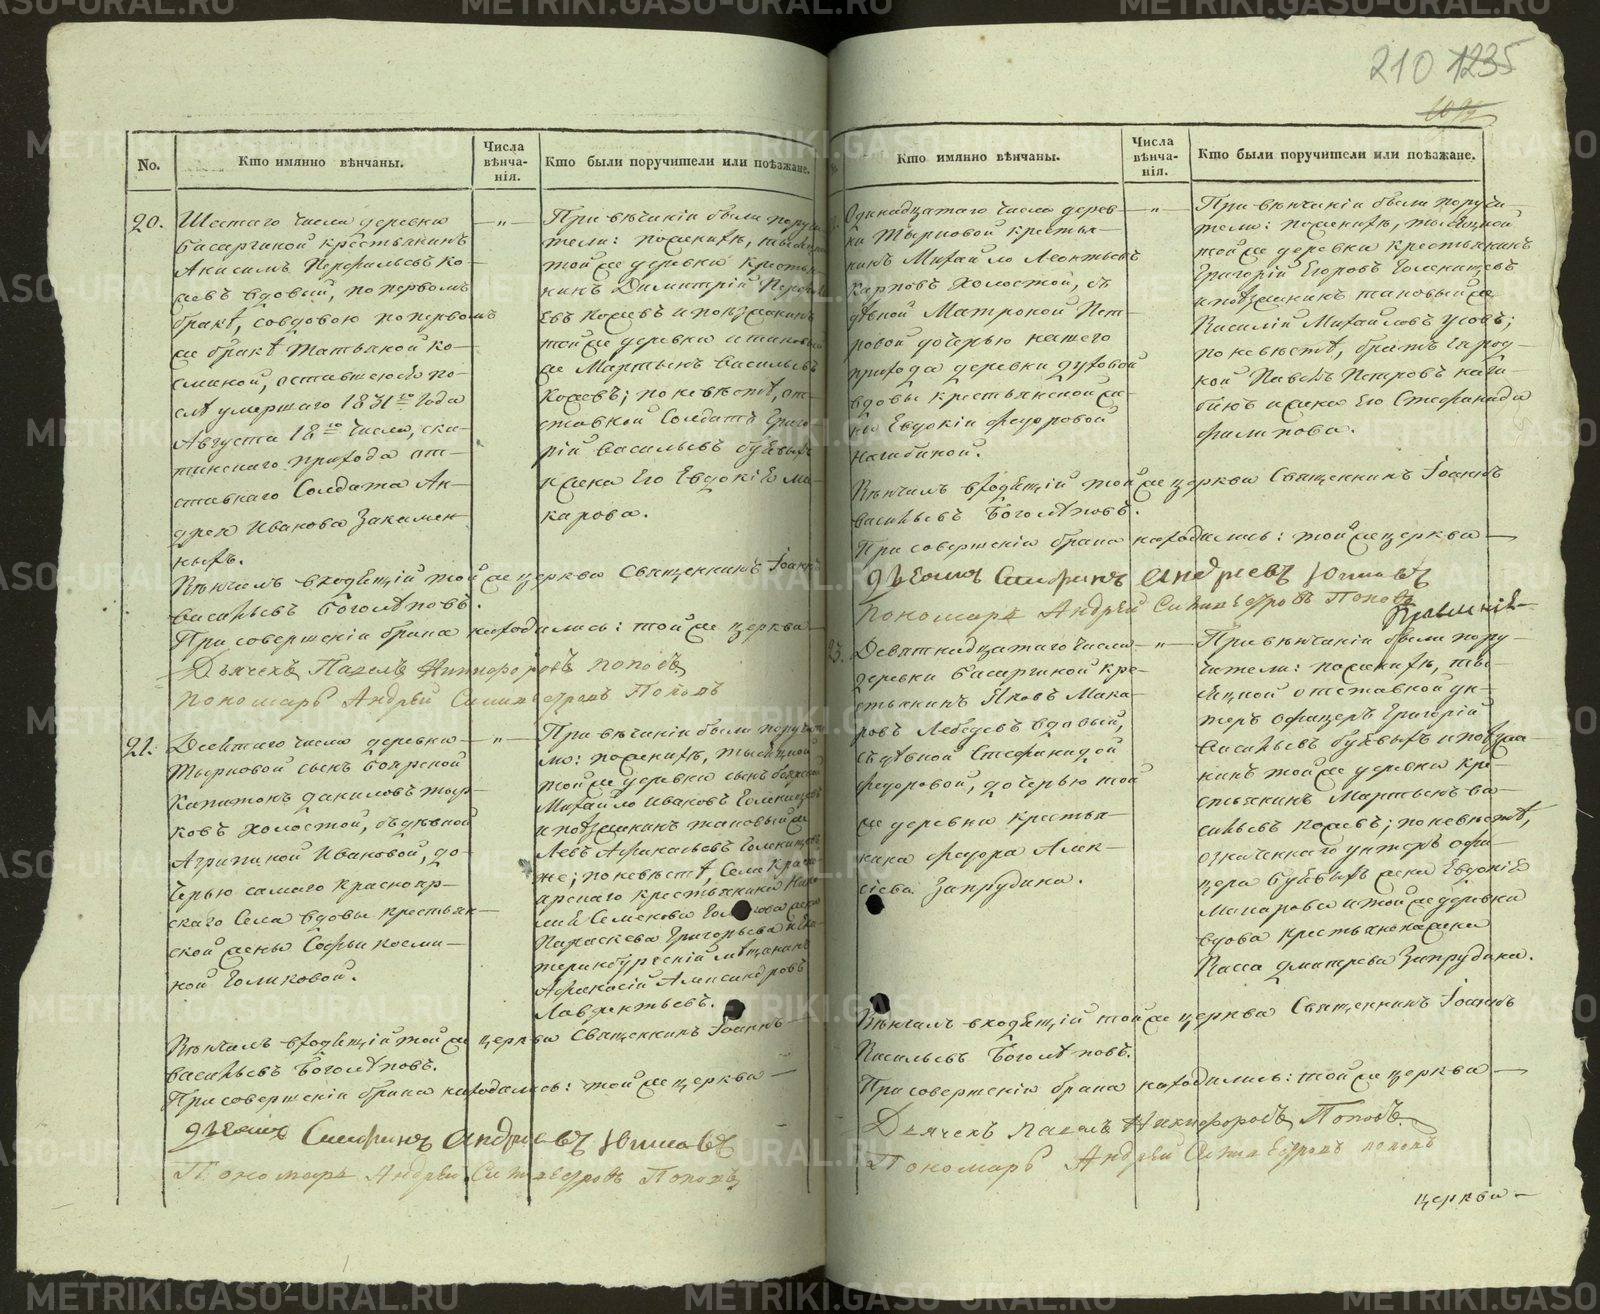 210 1235
No.
Кто имянно вѣнчаны.
Числа
вѣнча-
нія.
Кто были поручители или поѣзжане.
20.
Шестаго числа деревни
Басаргиной крестьянинъ
Анисимъ Перфильевъ Ко-
шевъ вдовый, по первомъ
бракѣ, со вдовою по первом
же бракѣ Татьяной Ко-
сминой, оставшеюся по-
слѣ умершаго 1831го года
Августа 18го числа,
прихода от-
ставнаго Солдата Ан-
дрея Иванова Закамен
ныхъ.
При вѣнчаніи были поручи
тели: по женихѣ,
той же деревни крестья
нинъ Димитрій Перфиль
евъ Кошевъ и поѣзжанинъ
той же деревни и таковый
же Мартынъ Васильевъ
Кошевъ; по невѣстѣ, от-
ставной Солдатъ Григо
рій Васильевъ
и жена Его Евдокія Ма-
карова.
Вѣнчалъ входящій той же церкви Священникъ Іоаннъ
Васильевъ Боголѣповъ.
При совершеніи брака находились: той же церкви
Дьячекъ Павелъ Никифоровъ Поповъ
Пономарь Андрей Силивестровъ Поповъ
21.
Десятаго числа деревни
сынъ Боярской
Капитонъ Даниловъ
ковъ холостой, съ дѣвкой
Агрипиной Ивановой, до-
черью самаго Краснояр-
скаго Села вдовы крестьян-
ской жены Софьи Косми-
ной Голиковой.
При вѣнчаніи были поручите
ли: по женихѣ, тысяцкой
той же деревни сынъ боярской
Михайло Ивановъ Голенищевъ
и поѣзжанинъ таковый же
Левъ Афанасьевъ Голенище
же; по невѣстѣ, Села Красно
ярскаго крестьянина
Семенова Голикова жена
Параскева Григорьева и Ека
теринбургскій мѣщанинъ
Афанасій Александровъ
Лаврентьевъ.
Вѣнчалъ входящій той же церкви Священникъ Іоаннъ
Васильевъ Боголѣповъ.
При совершеніи брака находились: той же церкви
Діаконъ Андреевъ
Пономарь Андрей Силивестровъ Поповъ
Кто имянно вѣнчаны.
Числа
вѣнча-
нія.
Кто были поручители или поѣзжане.
Одинадцатаго числа дерев-
ни крестья-
нинъ Михайло Леонтьевъ
Карповъ холостой, съ
дѣвкой Матроной Пет-
ровой дочерью нашего
прихода деревни Духовой
вдовы крестьянской же-
ны Евдокіи Федоровой
Нагибиной.
При вѣнчаніи были поручи-
тели: по женихѣ, тысяцкой
той же деревни крестьянинъ
Григорій Егоровъ Голенищевъ
и поѣзжанинъ таковый же
Василій Михайловъ Усовъ;
по невѣстѣ, братъ Ея род-
ной Павелъ Петровъ Наги-
бинъ и жена Его Стефанида
Филипова.
Вѣнчалъ входящій той же церкви Священникъ Іоаннъ
Васильевъ Боголѣповъ.
При совершеніи брака находились: той же церкви
Діаконъ Андреевъ
Пономарь Андрей Силивестровъ Поповъ
23.
Девятнадцатаго числа
деревни Басаргиной кре-
стьянинъ Яковъ Мака-
ровъ Лебедевъ вдовый,
съ дѣвкой Стефанидой
Федоровой, дочерью той
же деревни крестья-
нина Федора Алек-
сіева Запрудина.
При вѣнчаніи были пору-
чители: по женихѣ, ты-
сяцкой отставной ун-
теръ офицеръ Григорій
Васильевъ и поѣзжа-
нинъ той же деревни кре-
стьянинъ Мартынъ Ва-
сильевъ Кошевъ; по невѣстѣ,
означеннаго унтеръ офи-
цера жена Евдокія
Макарова и той же деревни
вдова крестьянская жена
Васса Дмитрева Запрудина.
Вѣнчалъ входящій той же церкви Священникъ Іоаннъ
Васильевъ Боголѣповъ.
При совершеніи брака находились: той же церкви
Дьячекъ Павелъ Никифоровъ Поповъ
Пономарь Андрей Силивестровъ Поповъ
церкви
METRIKI.GASO-URAL.RU